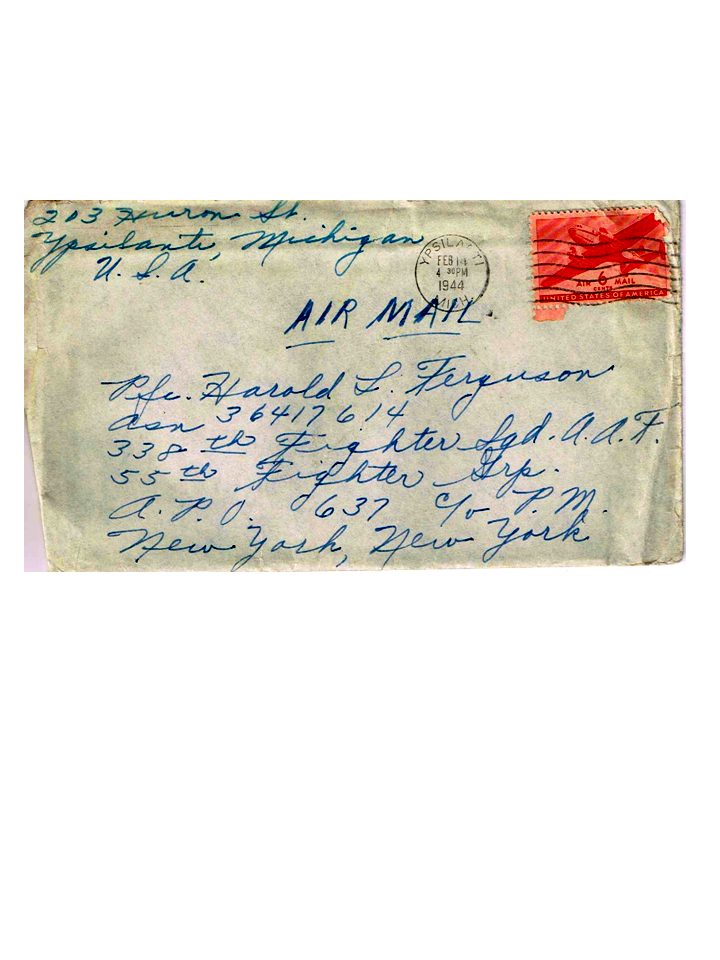 203 Huron St.
Ypsilanti, Michigan
U.S.A.
YPSILANTI
FEB 14
4 30PM
1944
MICH.
AIR 6 MAIL
CENTS
UNITED STATES OF AMERICA
AIR MAIL
Pfc. Harold L. Ferguson
asn 36417614
338 th Fighter Sqd. A.A.F.
55 th Fighter Grp.
A.P.O. 637 c/o P.M.
New York, New York